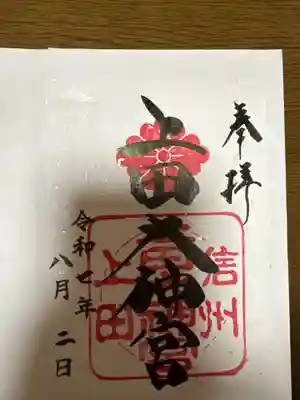 奉拝
上田大神宮
信州
上田
令和七年
八月二日